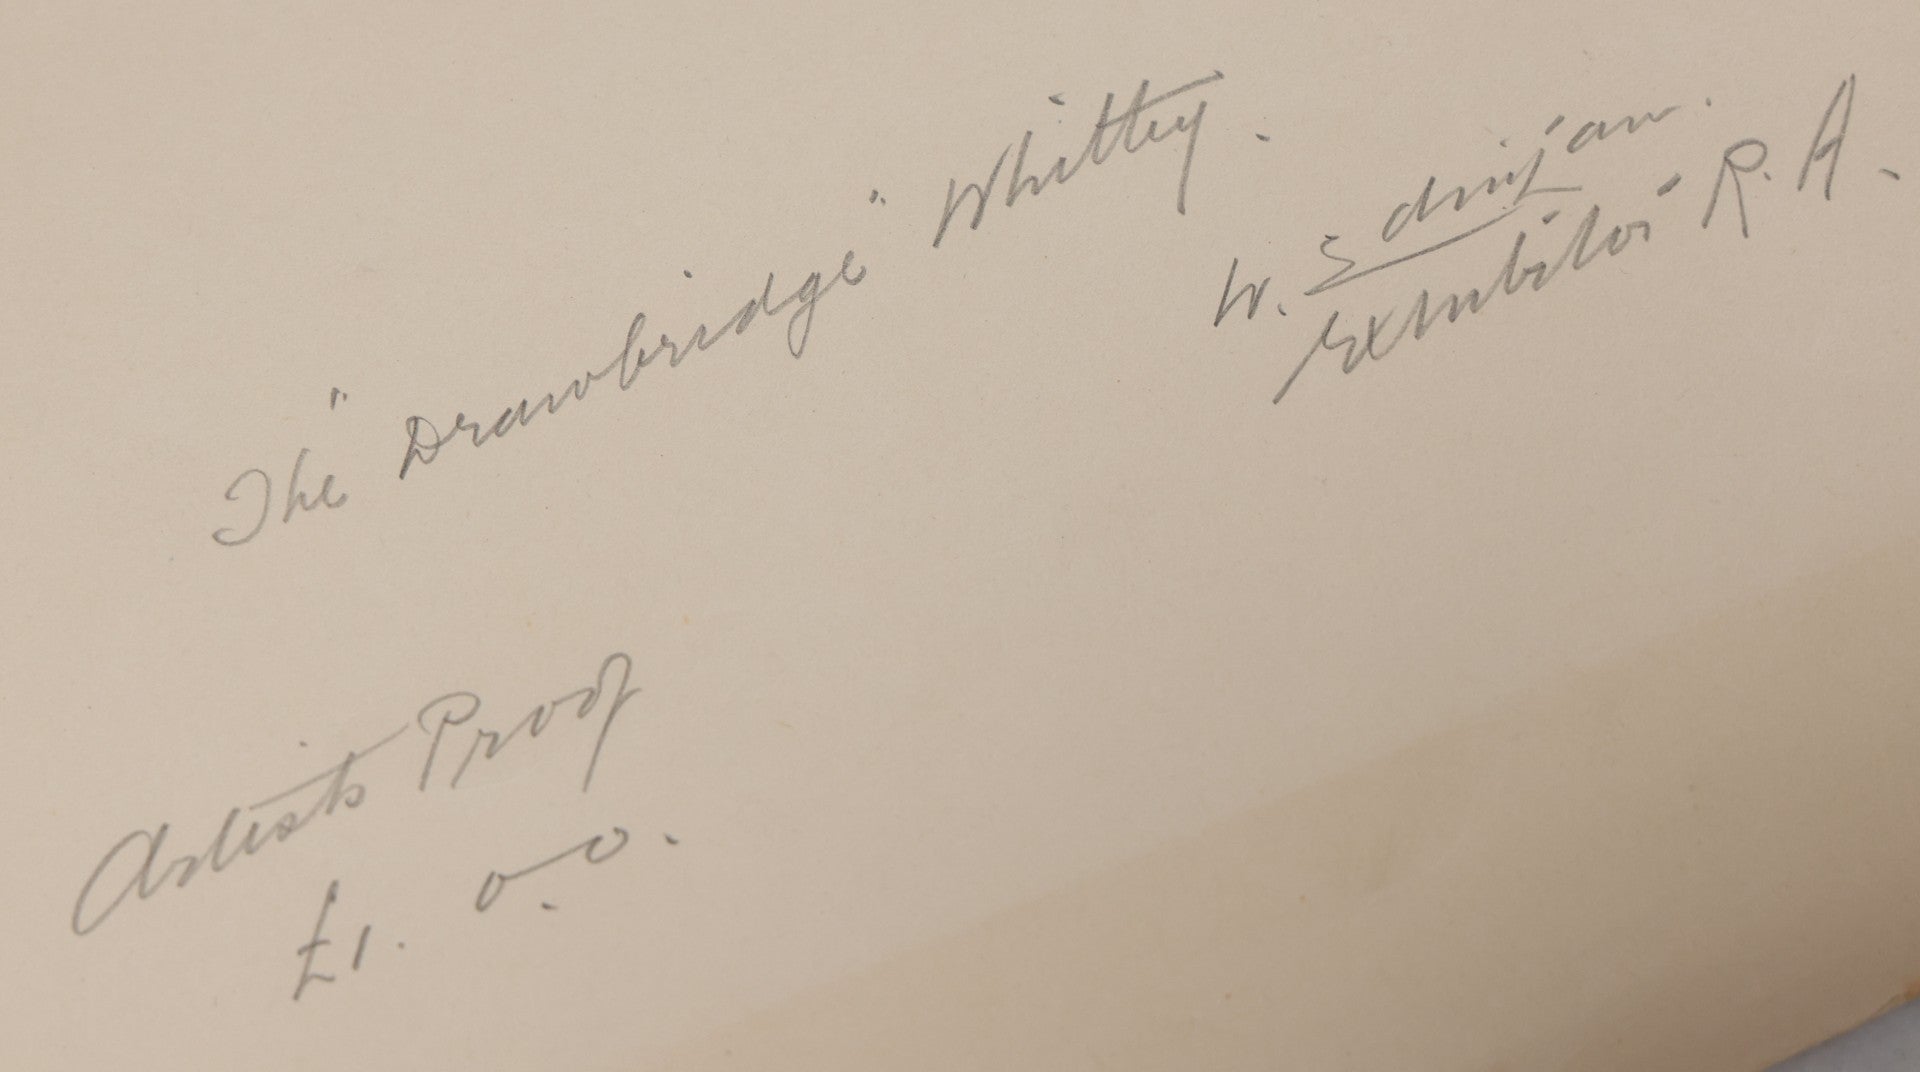 The "Drawbridge" Whitby.
W.
Exhibitor R.A.
Artists Proof
£1. 0. 0.